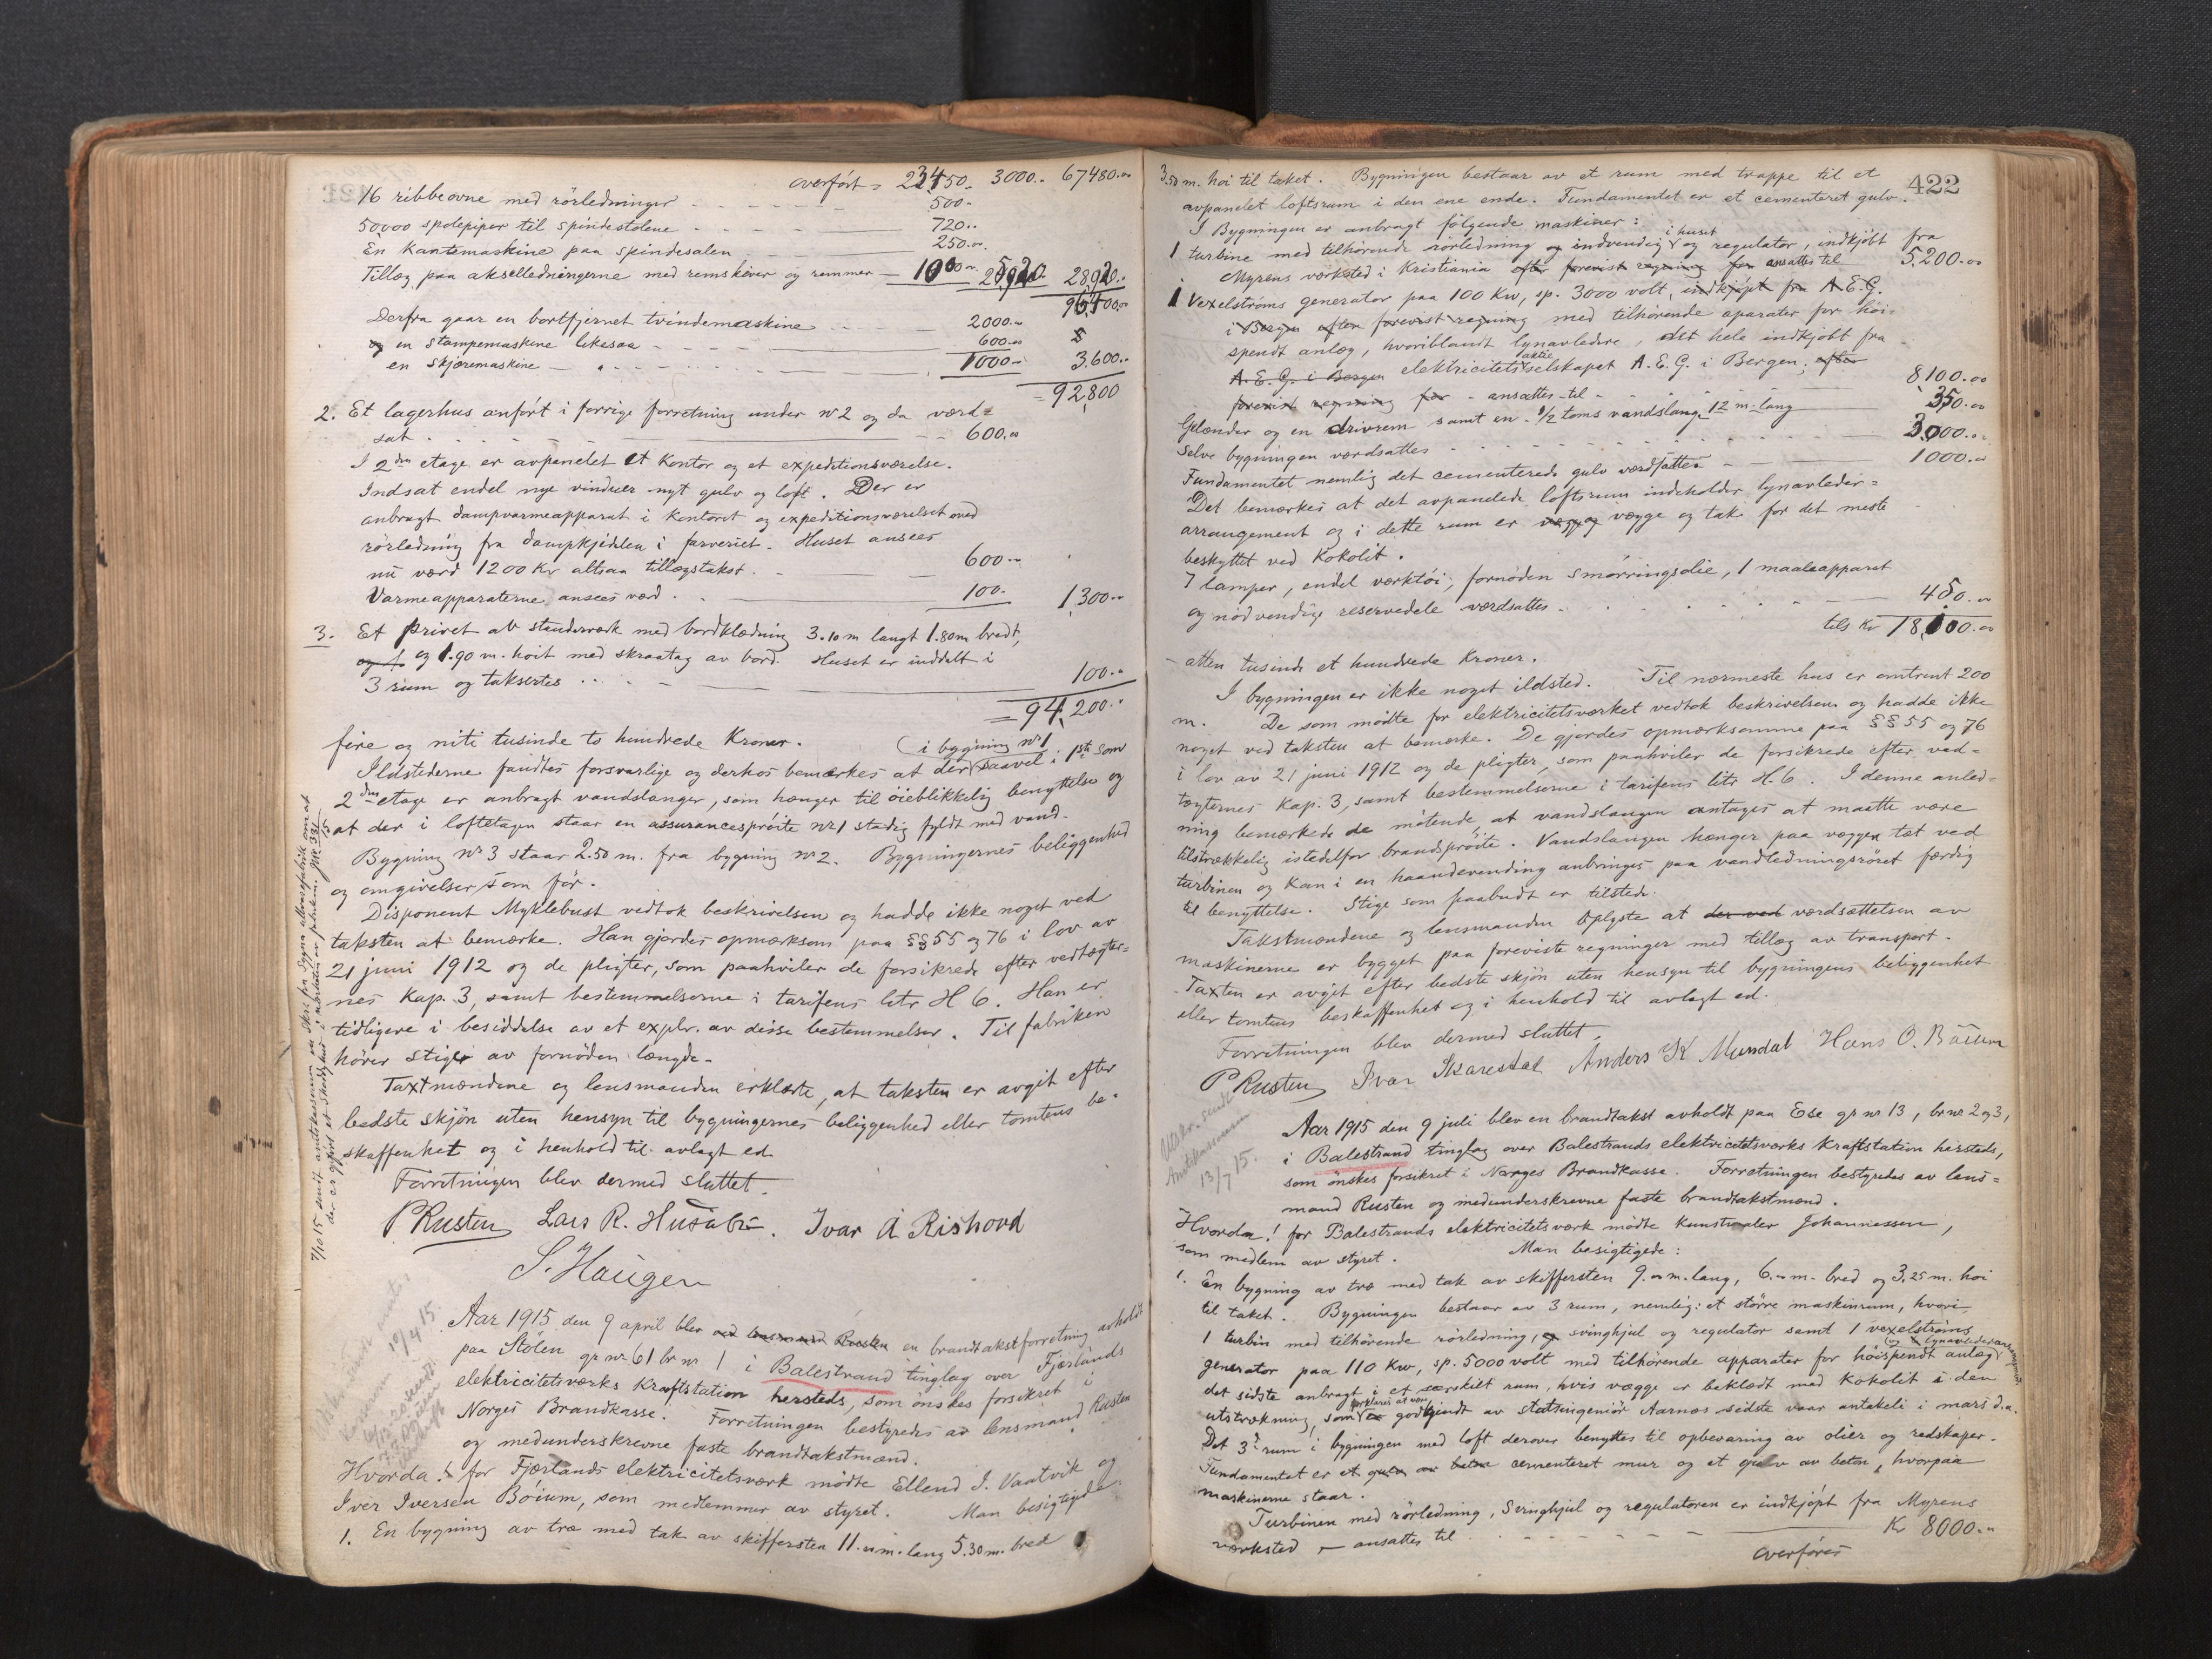 overfört = 23450. 3000.. 67480.00
16 ribbeovne med rörledninger 500.
50,000 spolepiper til spindestolene 720..
En Kantemaskine paa spindesalen 250.00
Tillæg paa akselledningerne med remskiver og remmer
Derfra gaar en bortfjernet tvindemaskine 2000.00
og en stampemaskine likesaa 600.00
en skjæremaskine 1000.. 3.600..
= 92,800
2. Et lagerhus anfört i forrige forretning under nr 2 og da værd=
sat 600.00
I 2den etage er avpanelet et Kontor og et expeditionsværelse.
Indsat endel nye vinduer nyt gulv og loft. Der er
anbragt dampvarmeapparat i Kontoret og expeditionsværelset med
rörledning fra dampkjedelen i farveriet. Huset ansees
nu værd 1200 Kr altsaa tillægstakst. 600..
Varmeapparaterne ansees værd 100. 1,300..
3. Et Privet av stenderværk med bordklædning 3.10 m langt 1.80m bredt,
og 1.90 m. höit med skraatag av bord. Huset er inddelt i
3 rum og taksertes 100..
= 94,200..
fire og niti tusinde to hundrede Kroner.
Ildstederne fandtes forsvarlige og derhos bemærkes at der (i bygning nr 1 saavel i 1ste som
2den etage er anbragt vandslanger, som hænger til öieblikkelig benyttelse og
at der i loftetagen staar en assurancespröite nr 1 stadig fyldt med vand.
Bygning nr 3 staar 2.50 m. fra bygning nr 2. Bygningernes beliggenhed
og omgivelser som för.
Disponent Myklebust vedtok beskrivelsen og hadde ikke noget ved
taksten at bemærke. Han gjordes opmerksom paa §§ 55 og 76 i lov av
21 juni 1912 og de pligter, som paahviler de forsikrede efter vedtægter=
nes Kap. 3, samt bestemmelserne i tarifens litr H 6. Han er
tidligere i besiddelse av et explr. av disse bestemmelser. Til fabriken
hörer stiger av fornöden længde.
Taxtmændene og lensmanden erklærte, at taksten er avgit efter
bedste skjön uten hensyn til bygningernes beliggenhed eller tomtens be=
skaffenhet og i henhold til avlagt ed
Forretningen blev dermed sluttet.
P Rusten Lars R. Husabö. Ivar A Rishovd
S. Haugen
Aar 1915 den 9 april blev ved lensmand Rusten en brandtakstforretning avholdt
paa Stölen gr nr 61 br nr 1 i Balestrand tinglag over Fjærlands
elektricitetsværks Kraftstation hersteds, som önskes forsikret i
Norges Brandkasse. Forretningen bestyredes av lensmand Rusten
og medunderskrevne faste brandtakstmænd.
Hvorda! for Fjærlands elektricitetsværk mödte Ellend I. Vaatvik og
Iver Iversen Böium, som medlemmer av styret. Man besigtigede:
1. En bygning av træ med tak av skiffersten 11.00m. lang 5.30m. bred
422
3.50 m. höi til taket. Bygningen bestaar av et rum med trappe til et
avpanelet loftsrum i den ene ende. Fundamentet er et cementeret gulv.
I Bygningen er anbragt fölgende maskiner:
1 turbine med tilhörende rörledning og indvendig i huset og regulator, indkjöbt fra
Myrens verksted i Kristiania efter forevist regning for ansattes til 5.200.00
1 Vexelströms generator paa 100 Kw, sp. 3000 volt, indkjöpt fra A.E.G.
i Bergen efter forevist regning med tilhörende aparater for höi=
spendt anlæg, hvoriblandt lynavledere, det hele indkjöbt fra
A.E.G. i Bergen elektricitetsaktieselskapet A.E.G. i Bergen, efter
forevist regning for - ansattes til 8100.00
Gelænder og en drivrem samt en 1/2 toms vandslange 12 m. lang 350.00
Selve bygningen værdsattes 3,000..
Fundamentet nemlig det cementerede gulv værdsattes 1000.00
Det bemærkes at det avpanelede loftsrum indeholder lynavleder=
arrangement og i dette rum er vægge og tak for det meste
beskyttet ved Kokolit.
7 lamper, endel værktöi, fornöden smörringsolie, 1 maaleapparat
og nödvendige reservedele værdsattes 450.00
tils Kr 18,100.00
- atten tusinde et hundrede Kroner.
I bygningen er ikke noget ildsted. Til nærmeste hus er omtrent 200
m. De som mödte for elektricitetsværket vedtok beskrivelsen og hadde ikke
noget ved taksten at bemærke. De gjordes opmærksomme paa §§ 55 og 76
i lov av 21 juni 1912 og de pligter, som paahviler de forsikrede efter ved=
tægternes Kap. 3, samt bestemmelserne i tarifens litr H. 6. I denne anled=
ning bemerkede de mötende at vandslangen antages at maatte være
tilstrækkelig istedetfor brandspröite. Vandslangen hænger paa væggen tæt ved
turbinen og kan i en haandevending anbringes paa vandledningsröret færdig
til benyttelse. Stige som paabudt er tilstede.
Takstmændene og lensmanden oplyste at der ved værdsættelsen av
maskinerne er bygget paa foreviste regninger med tillæg av transport.
Taxten er avgit efter bedste skjön uten hensyn til bygningens beliggenhet
eller tomtens beskaffenhet og i henhold til avlagt ed.
Forretningen blev dermed sluttet.
P Rusten Ivar Skarestad Anders K Mundal Hans O. Böium
Aar 1915 den 9 juli blev en brandtakst avholdt paa Ese gr nr 13, br nr 2 og 3,
i Balestrand tinglag over Balestrands elektricitetsværks Kraftstation hersteds,
som önskes forsikret i Norges Brandkasse. Forretningen bestyredes av lens=
mand Rusten og medunderskrevne faste brandtakstmænd.
Hvorda! for Balestrands elektricitetsværk mödte Kunstmaler Johannessen,
som medlem av styret. Man besigtigede:
1. En bygning av træ med tak av skiffersten 9.00 m. lang, 6.00 m. bred og 3.25 m. höi
til taket. Bygningen bestaar av 3 rum, nemlig: et större maskinrum, hvori
1 turbin med tilhörende rörledning, og svinghjul og regulator samt 1 vexelströms
generator paa 110 Kw, sp. 5000 volt med tilhörende apparater for höispendt anlæg (og lynavlederarrangement)
det sidste anbragt i et særskilt rum, hvis vægge er beklædt med Kokolit i den
utstrækning, som erklæres at være godkjendt av statsingeniör Aarnæs sidste vaar antakeli i mars d.a.
Det 3de rum i bygningen med loft derover benyttes til opbevaring av olier og redskaper.
Fundamentet er et gulv av beton cementeret mur og et gulv av beton, hvorpaa
maskinerne staar.
Turbinen med rörledning, Svinghjul og regulatoren er indkjöpt fra Myrens
værksted - ansattes til Kr 8000.00
overföres